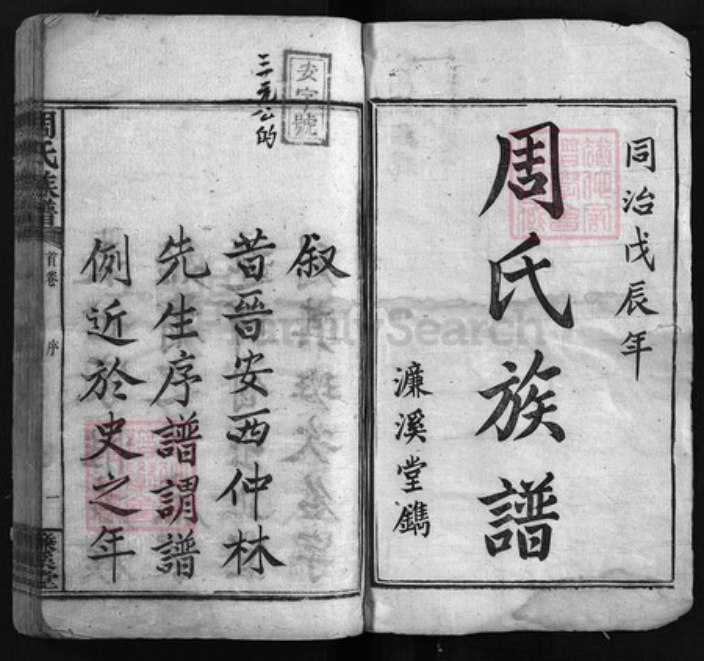 同治戊辰年
周氏族譜
濂溪堂鐫
安字號
三元公的
叙
昔晉安西仲林
先生序譜謂譜
例近於史之年
周氏族譜
首卷
序
一
濂溪堂
FamilySearch